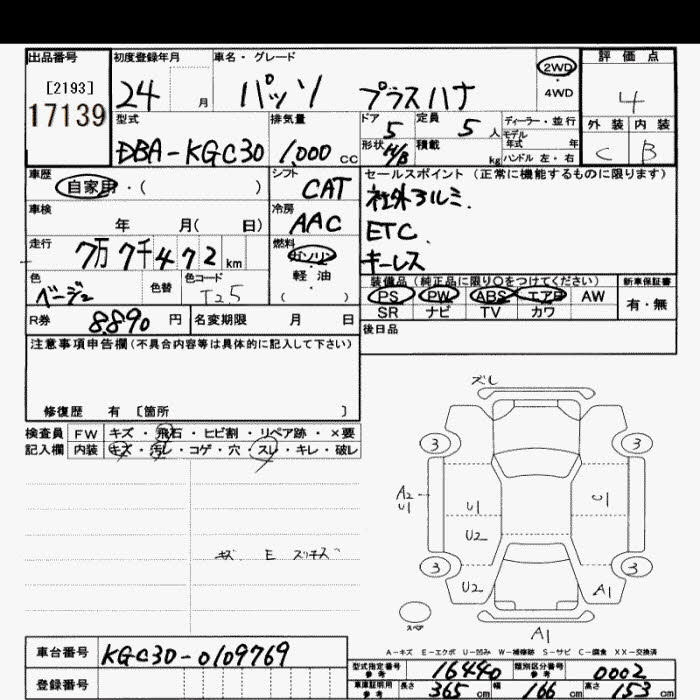 出品番号 初度登録年月 車名・グレード 評価点
[2193]
17139
24 月 パッソ プラスハナ 2WD・4WD 4
型式 排気量 ドア 5 定員 5 人 ディーラー・並行 外装 内装
モデル年式 年
DBA-KGC30 1,000 cc 形状 H/B 積載 kg ハンドル 左・右 C B
車歴 シフト セールスポイント(正常に機能するものに限ります)
自家用・( ) CAT 社外アルミ.
車検 冷房 ETC.
年 月( 日) AAC キーレス
走行 燃料
7万7千472 km ガソリン
軽油
( )
色 色替 色コード 装備品(純正品に限り○をつけてください) 新車保証書
ベージュ T25 PS PW ABS エアB AW 有・無
SR ナビ TV カワ
R券 8890 円 名変期限 月 日 後日品
注意事項申告欄(不具合内容等は具体的に記入して下さい)
修復歴 有 〔箇所 〕
検査員 FW キズ・飛石・ヒビ割・リペア跡・×要
記入欄 内装 キズ・汚レ・コゲ・穴・スレ・キレ・破レ
ズレ
3 3
A2
U1 U1 U1
U2
3 3
U2 A1
スペア
A1
キズ E スリキズ
A-キズ E-エクボ U-凹み W-補修跡 S-サビ C-腐食 XX-交換済
車台番号 KGC30-0109769
登録番号
型式指定番号 参考 16440 類別区分番号 参考 0002
車庫証明用 参考 長さ 365 cm 幅 166 cm 高さ 153 cm